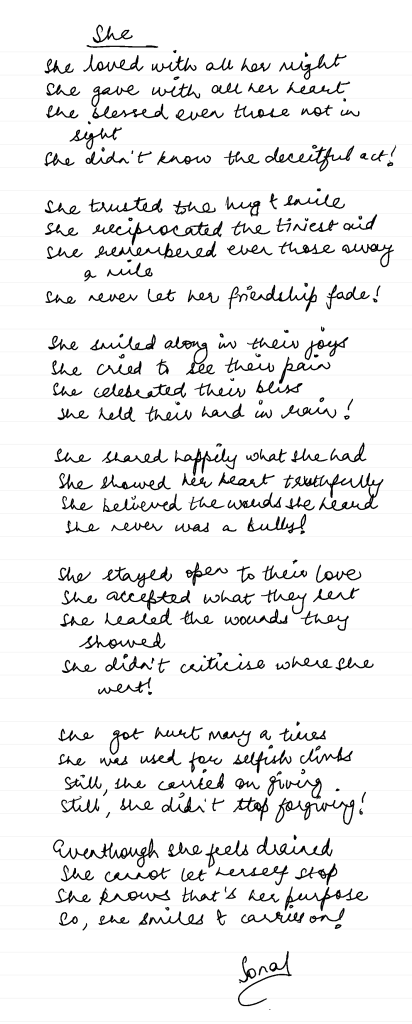 She
She loved with all her might
She gave with all her heart
She blessed even those not in
sight
She didn't know the deceitful act!
She trusted the hug & smile
She reciprocated the tiniest aid
She remembered even those away
a mile
She never let her friendship fade!
She smiled along in their joys
She cried to see their pain
She celebrated their bliss
She held their hand in rain!
She shared happily what she had
She showed her heart truthfully
She believed the words she heard
She never was a bully!
She stayed open to their love
She accepted what they sent
She healed the wounds they
showed
She didn't criticise where she
went!
She got hurt many a times
She was used for selfish climbs
Still, she carried on giving.
Still, she didn't stop forgiving!
Eventhough she feels drained
She cannot let herself stop
She knows that's her purpose
So, she smiles & carries on!
Sonal